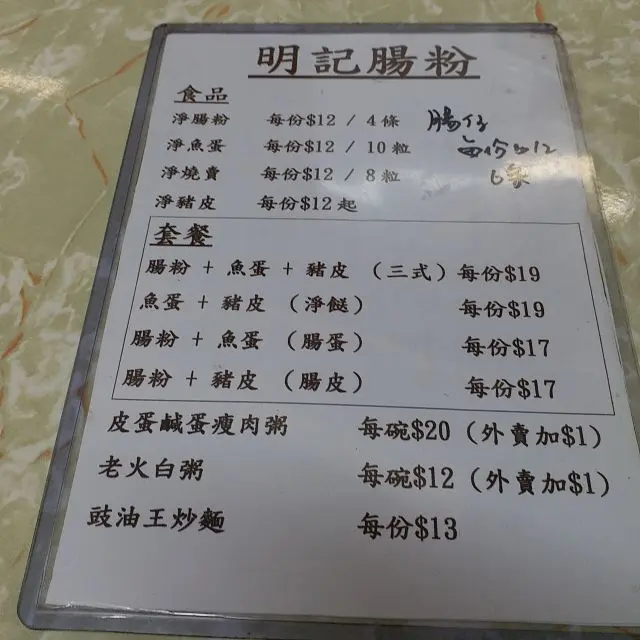 明記腸粉
食品
淨腸粉 每份$12 / 4條 腸仔
淨魚蛋 每份$12 / 10粒 每份$12
淨燒賣 每份$12 / 8粒 6條
淨豬皮 每份$12起
套餐
腸粉 + 魚蛋 + 豬皮 (三式) 每份$19
魚蛋 + 豬皮 (淨餸) 每份$19
腸粉 + 魚蛋 (腸蛋) 每份$17
腸粉 + 豬皮 (腸皮) 每份$17
皮蛋鹹蛋瘦肉粥 每碗$20 (外賣加$1)
老火白粥 每碗$12 (外賣加$1)
豉油王炒麵 每份$13